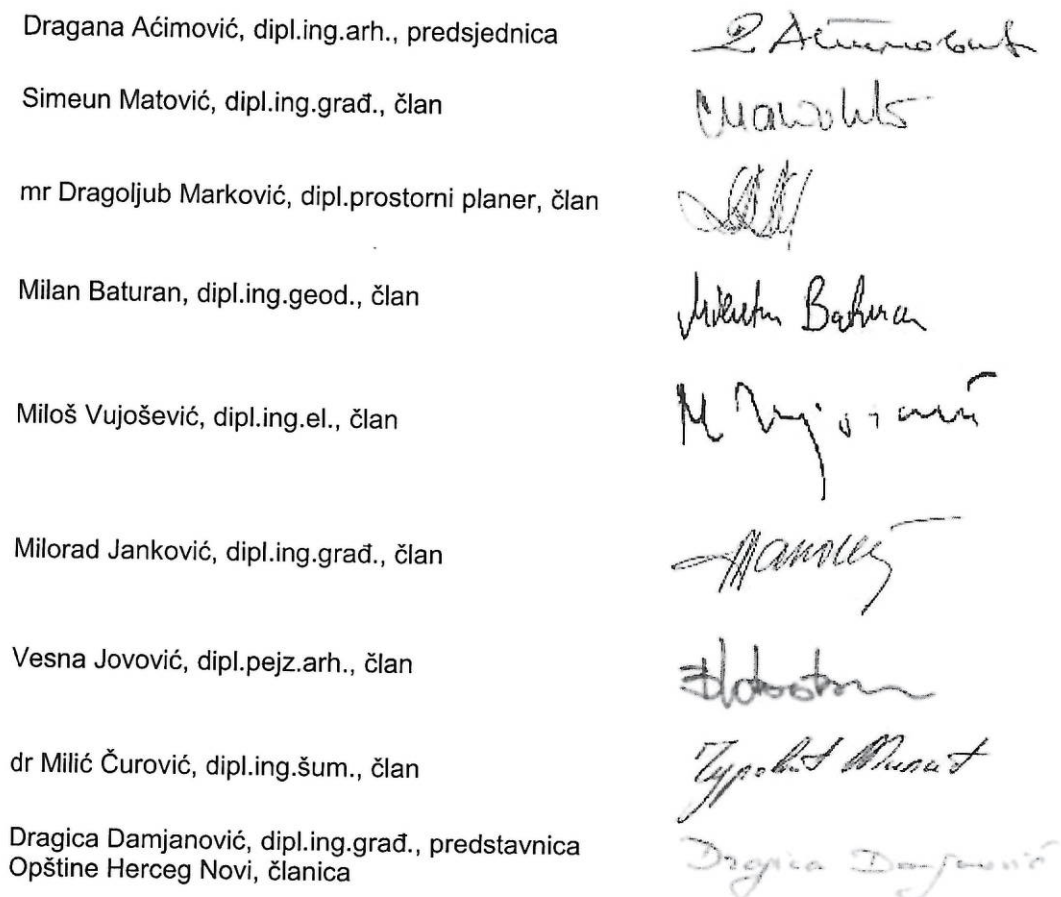 Dragana Aćimović, dipl.ing.arh., predsjednica
Simeun Matović, dipl.ing.građ., član
mr Dragoljub Marković, dipl.prostorni planer, član
Milan Baturan, dipl.ing.geod., član
Milan Baturan
Miloš Vujošević, dipl.ing.el., član
Milorad Janković, dipl.ing.građ., član
Vesna Jovović, dipl.pejz.arh., član
dr Milić Čurović, dipl.ing.šum., član
Dragica Damjanović, dipl.ing.građ., predstavnica
Opštine Herceg Novi, članica
Dragica Damjanović